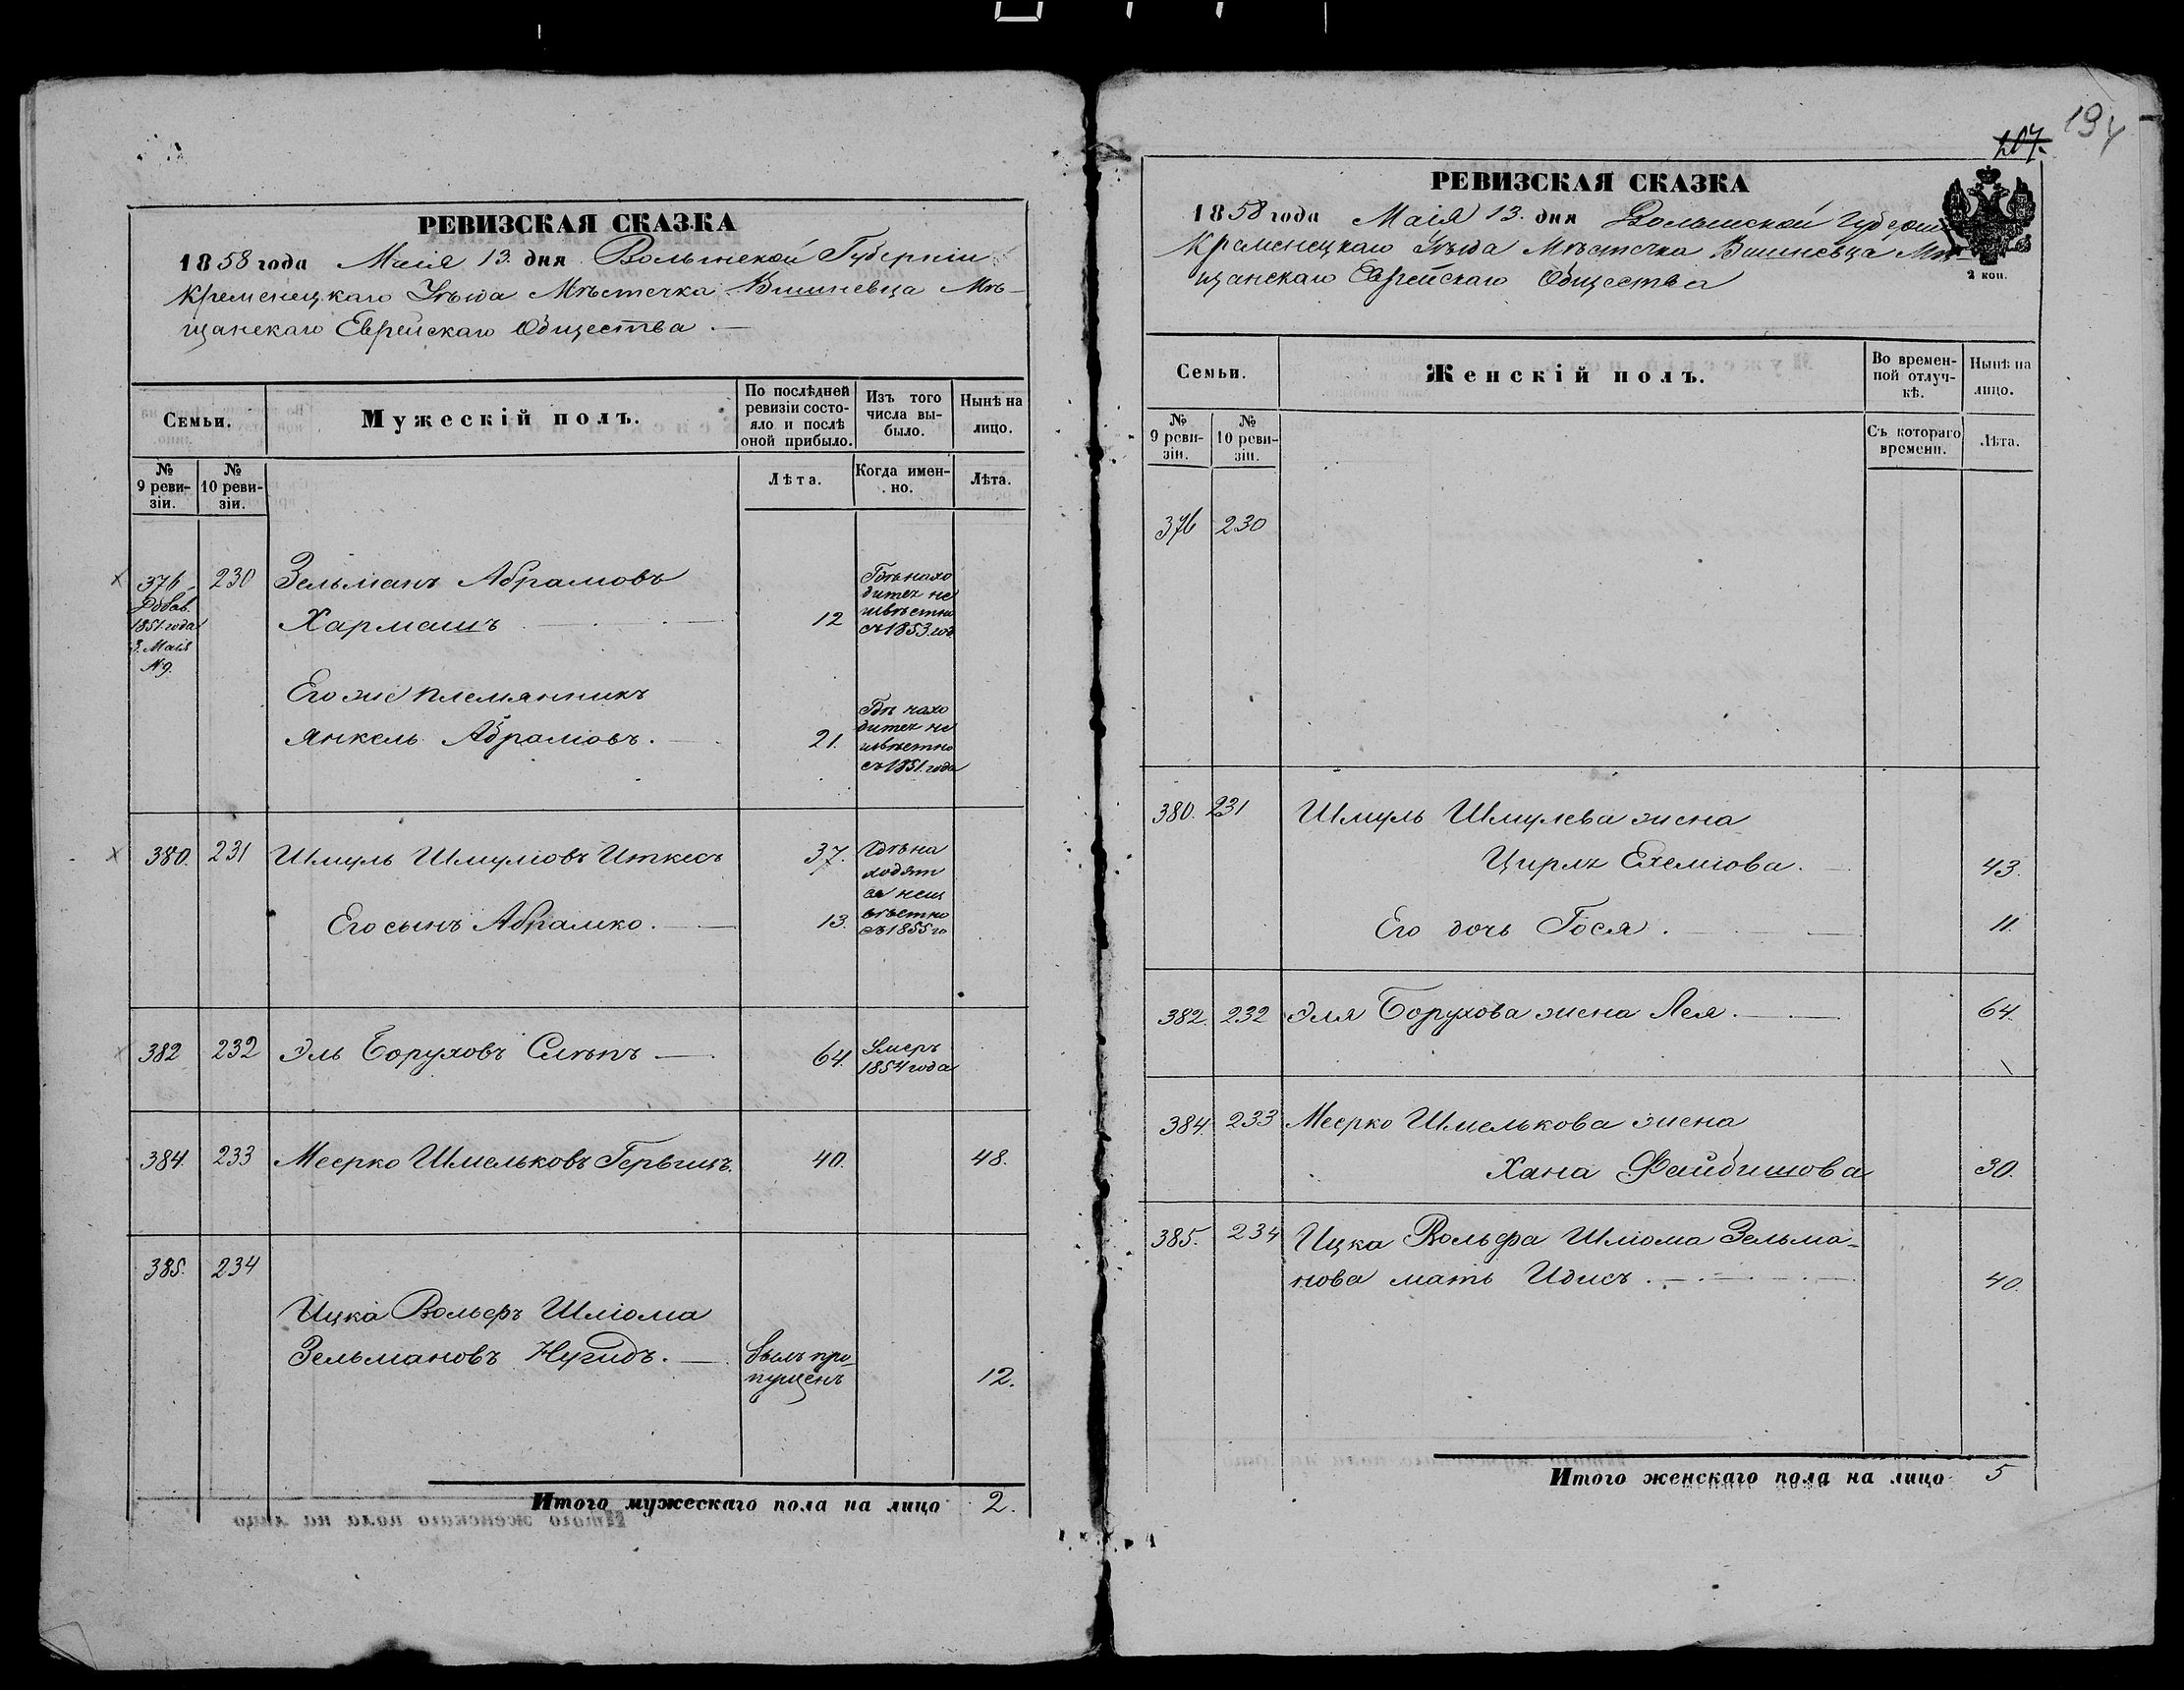 РЕВИЗСКАЯ СКАЗКА
1858 года Маія 13. дня Волынской Губерніи
Кременецкаго Уѣзда Мѣстечка Вишневца Мѣ-
щанскаго Еврейскаго Общества.
Семьи.
Мужескій полъ.
По послѣдней
ревизіи состо-
яло и послѣ
оной прибыло.
Изъ того
числа вы-
было.
Нынѣ на
лицо.
№
9 реви-
зіи.
№
10 реви-
зіи.
Лѣта.
Когда имен-
но.
Лѣта.
376
Добав.
1851. года
3. Маія
№9.
230
Зельманъ Абрамовъ
Хармашъ
12
Гдѣ нахо
дится не
извѣстно
съ 1853. год
Его же племянникъ
Янкель Абрамовъ.
21.
Гдѣ нахо
дится не
извѣстно
съ 1851. года
380. 231 Шмуль Шмуліовъ Иткесъ 37.
Гдѣ на
ходят
ся неиз
вѣстно
съ 1855 го
Его сынъ Абрамко. 13.
382 232 Эль Боруховъ Слѣпъ 64.
Умеръ
1854 года
384. 233 Меерко Шмельковъ 40. 48.
385. 234
Ицка Вольфъ Шліома
Зельмановъ Нугидъ.
былъ про-
пущенъ
12.
Итого мужескаго пола на лицо 2.
207.
194
РЕВИЗСКАЯ СКАЗКА
1858 года Маія 13. дня Волынской Губерніи
Кременецкаго Уѣзда Мѣстечка Вишневца Мѣ-
щанскаго Еврейскаго Общества
2 коп.
Семьи.
Женскій полъ.
Во времен-
ной отлуч-
кѣ.
Нынѣ на
лицо.
№
9 реви-
зіи.
№
10 реви-
зіи.
Съ котораго
времени.
Лѣта.
376 230
380. 231 Шмуль Шмулева жена
Цирля 43.
Его дочь Гося. 11.
382. 232 Эля Борухова жена Лея. 64.
384. 233 Меерко Шмелькова жена
Хана Файбишова 30.
385. 234 Ицка Вольфа Шліома Зельма-
нова мать Идисъ. 40.
Итого женскаго пола на лицо 5